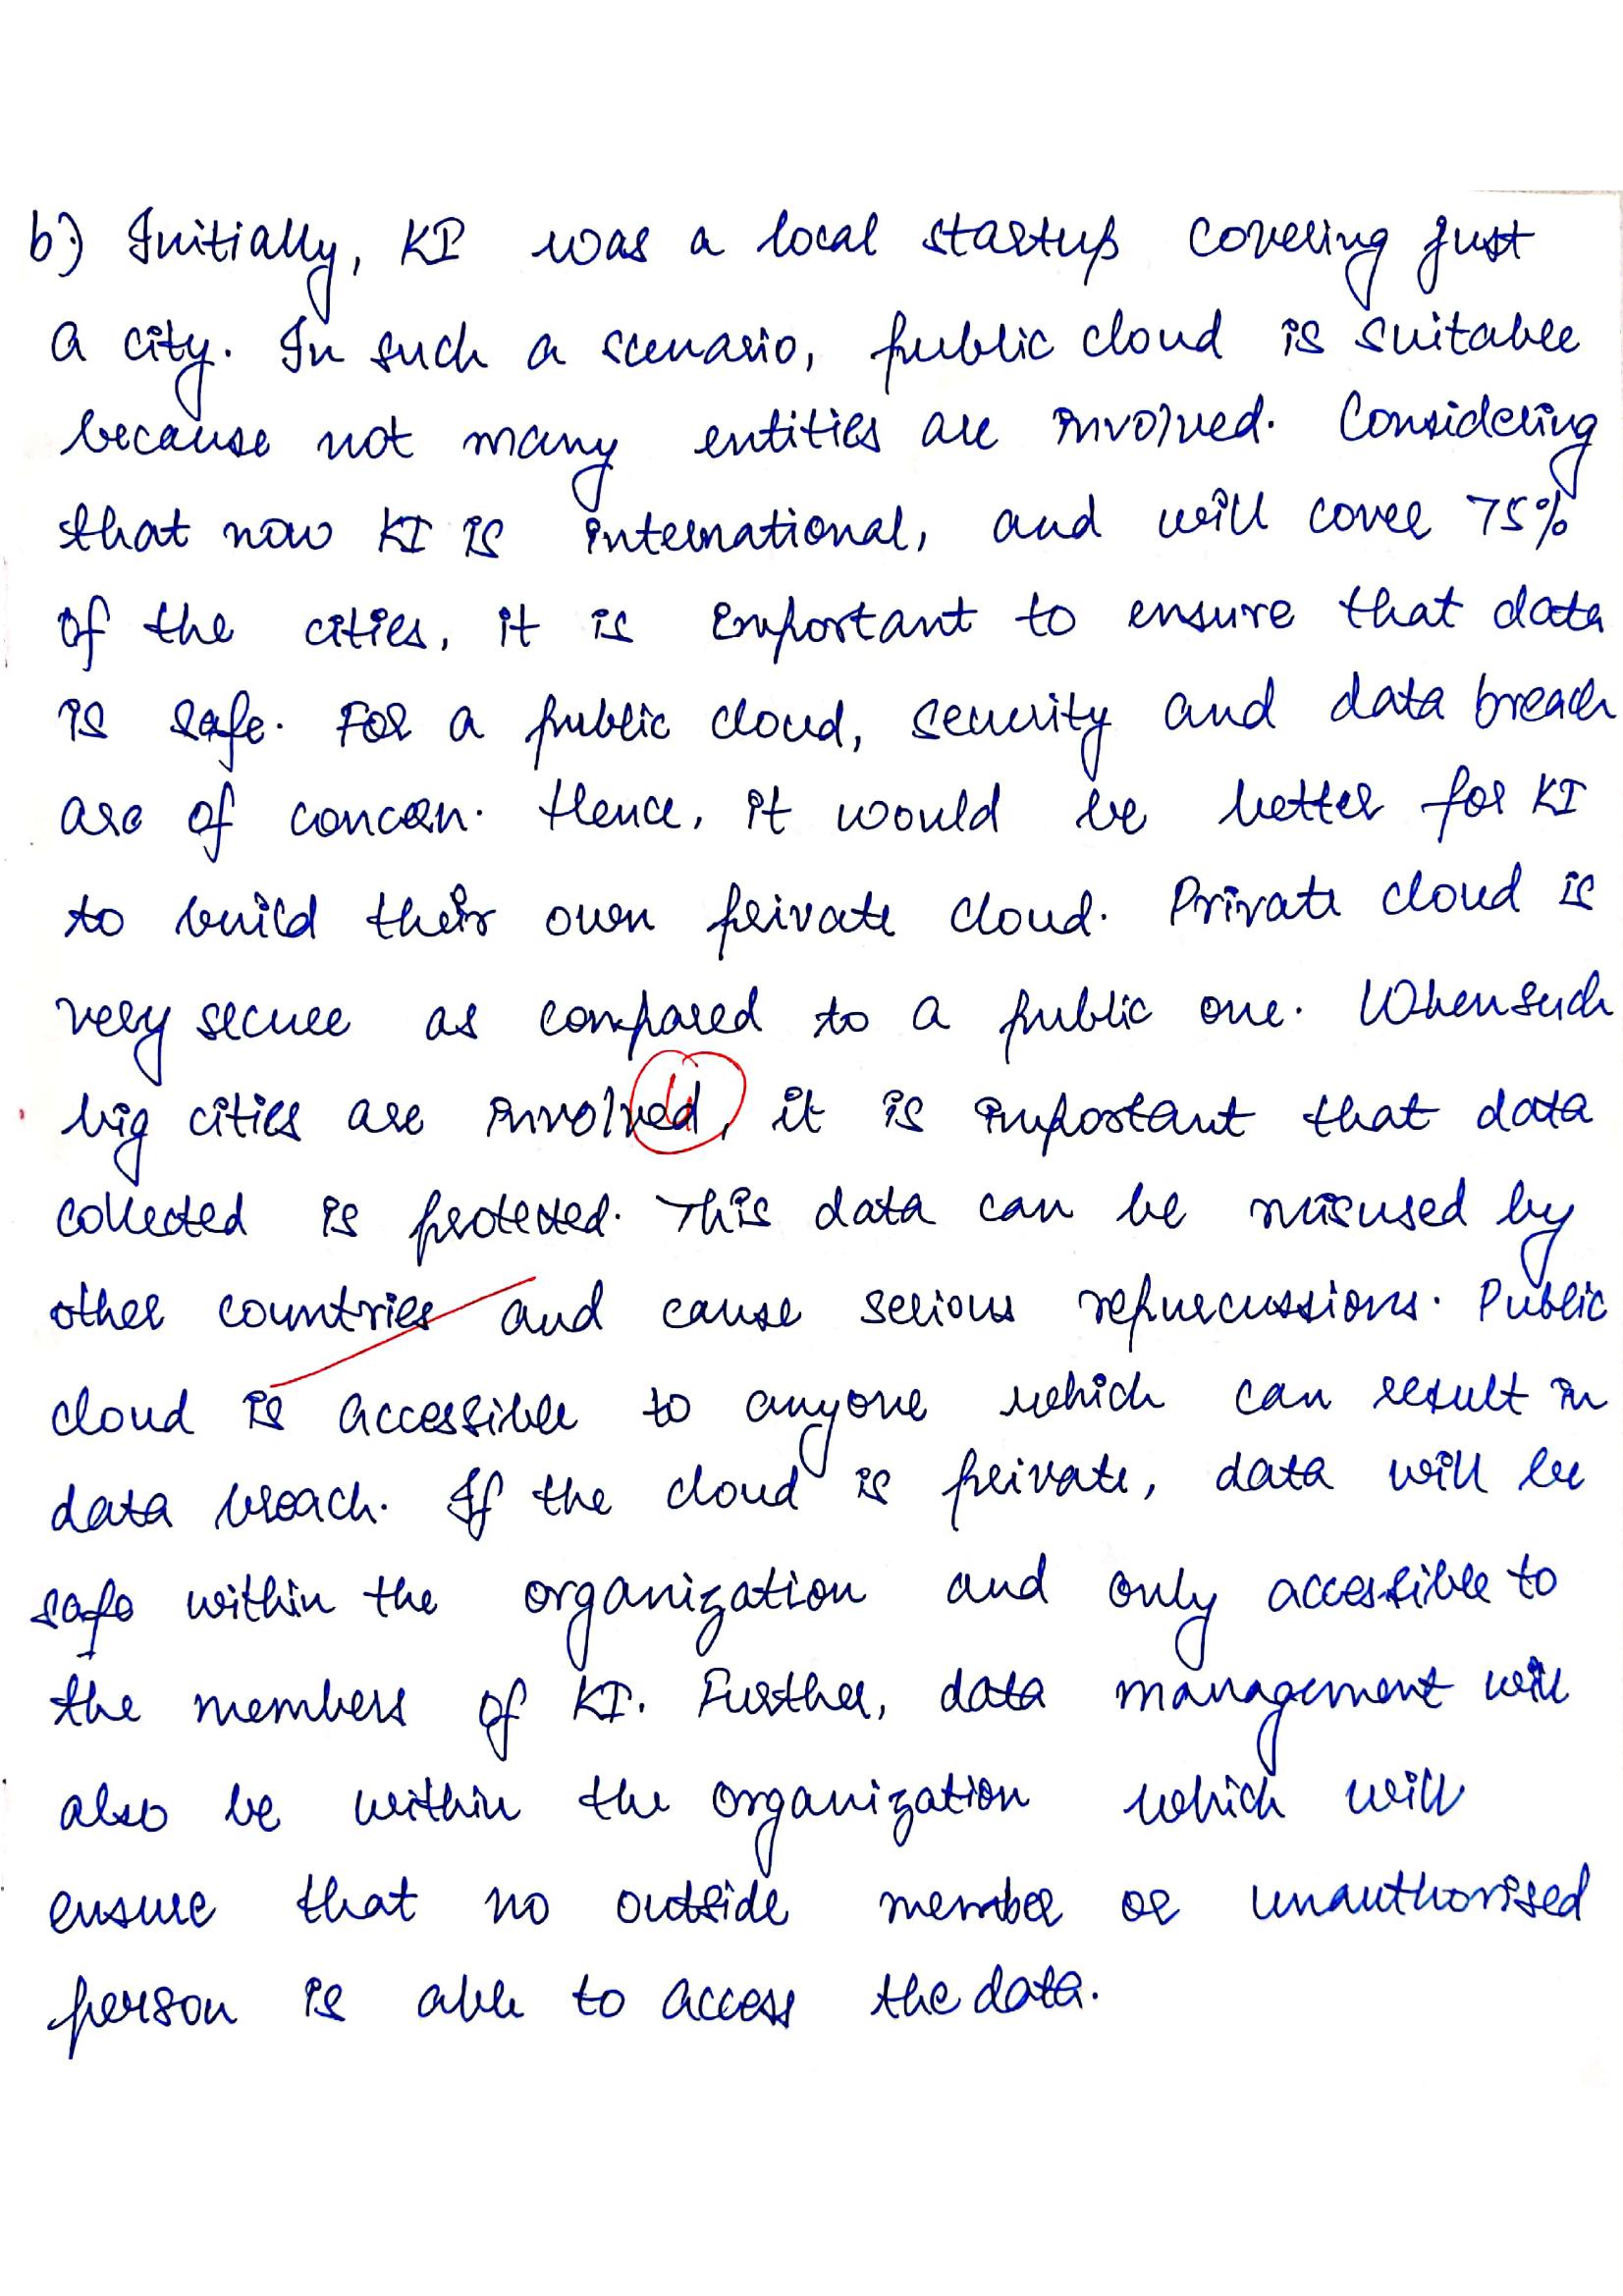 b) Initially, KI was a local startup covering just
a city. In such a scenario, public cloud is suitable
because not many entities are involved. Considering
that now KI is international, and will cover 75%
of the cities, it is important to ensure that data
is safe. For a public cloud, security and data breach
are of concern. Hence, it would be better for KI
to build their own private cloud. Private cloud is
very secure as compared to a public one. When such
big cities are involved, it is important that data
collected is protected. This data can be misused by
other countries and cause serious repurcussions. Public
cloud is accessible to anyone which can result in
data breach. If the cloud is private, data will be
safe within the organization and only accessible to
the members of KI. Further, data management will
also be within the organization which will
ensure that no outside member or unauthorised
person is able to access the data.